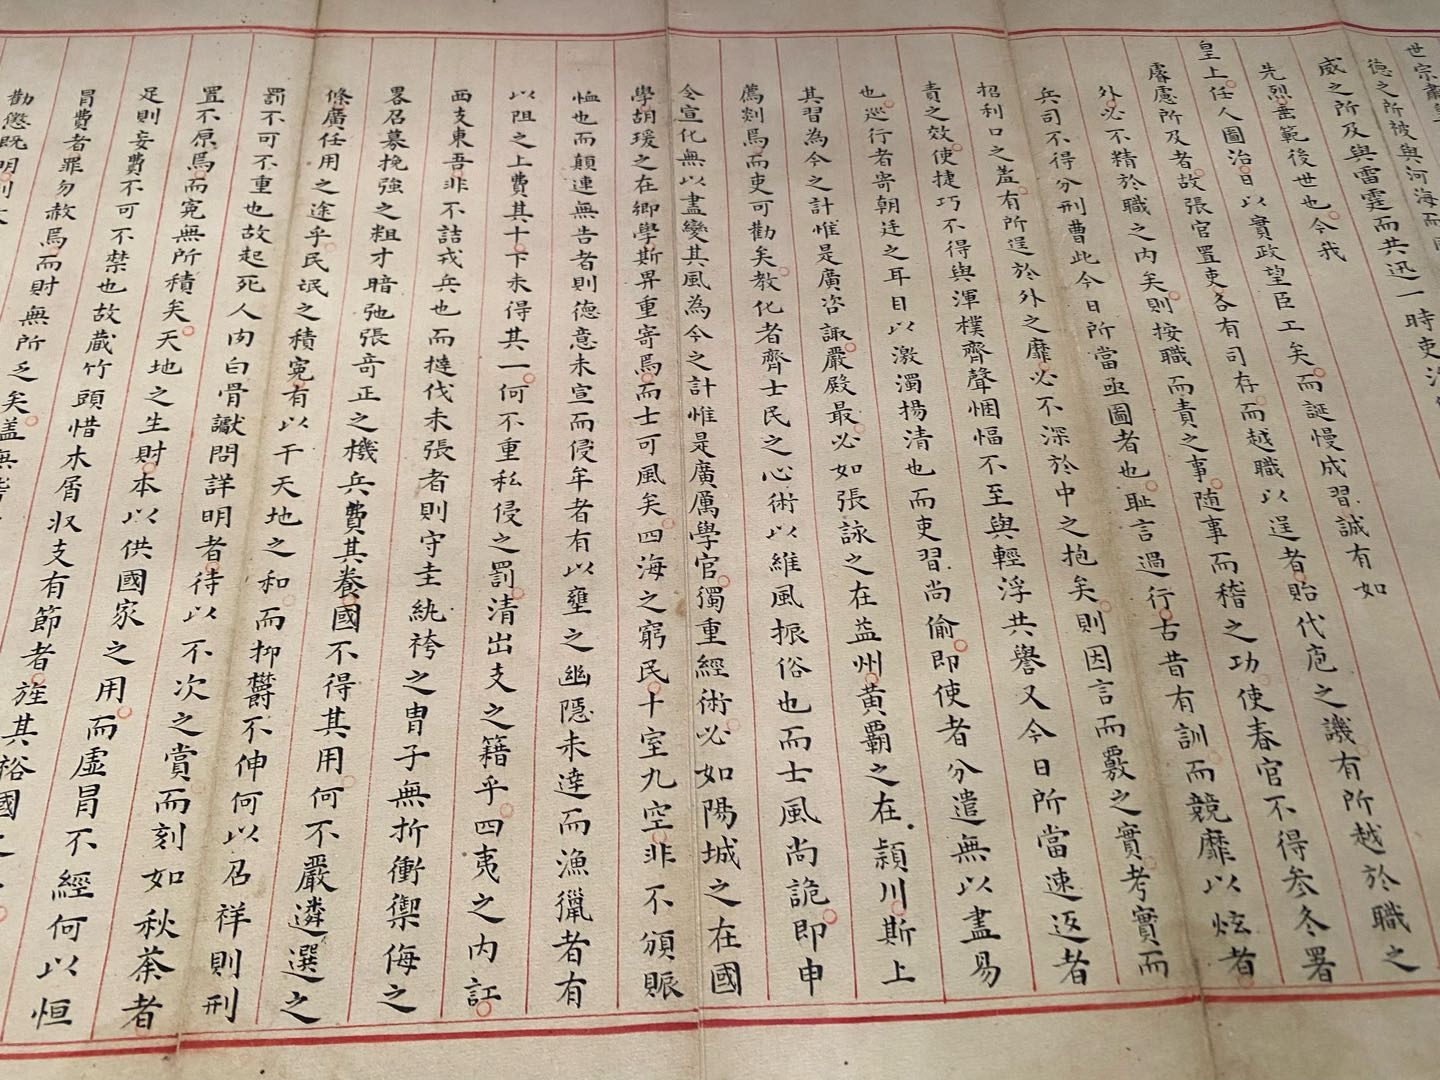 世宗肅皇
德之所被與河海而
威之所及與雷霆而共迅一時吏治
先烈垂範後世也今我
皇上任人圖治日以實政望臣工矣而誕慢成習誠有如
睿慮所及者故張官置吏各有司存而越職以逞者貽代庖之譏有所越於職之
外必不精於職之內矣則按職而責之事隨事而稽之功使春官不得參冬署
兵司不得分刑曹此今日所當亟圖者也恥言過行古昔有訓而競靡以炫者
招利口之羞有所逞於外之靡必不深於中之抱矣則因言而覈之實考實而
責之效使捷巧不得與渾樸齊聲悃愊不至與輕浮共譽又今日所當速返者
也巡行者寄朝廷之耳目以激濁揚清也而吏習尚偷即使者分遣無以盡易
其習為今之計惟是廣咨諏嚴殿最必如張詠之在益州黃霸之在潁川斯上
薦剡焉而吏可勸矣教化者齊士民之心術以維風振俗也而士風尚詭即申
令宣化無以盡變其風為今之計惟是廣厲學官獨重經術必如陽城之在國
學胡瑗之在鄉學斯畀重寄焉而士可風矣四海之窮民十室九空非不頒賑
恤也而顛連無告者則德意未宣而侵牟者有以壅之幽隱未達而漁獵者有
以阻之上費其十下未得其一何不重私侵之罰清出支之籍乎四夷之內訌
西支東吾非不詰戎兵也而撻伐未張者則守圭紈袴之冑子無折衝禦侮之
畧召募挽強之粗才暗弛張竒正之機兵費其養國不得其用何不嚴遴選之
條廣任用之途乎民氓之積寃有以干天地之和而抑欝不伸何以召祥則刑
罰不可不重也故起死人肉白骨讞問詳明者待以不次之賞而刻如秋荼者
置不原焉而寃無所積矣天地之生財本以供國家之用而虛冒不經何以恒
足則妄費不可不禁也故藏竹頭惜木屑収支有節者旌其裕國之
冒費者罪勿赦焉而財無所乏矣蓋無
勸懲既明則